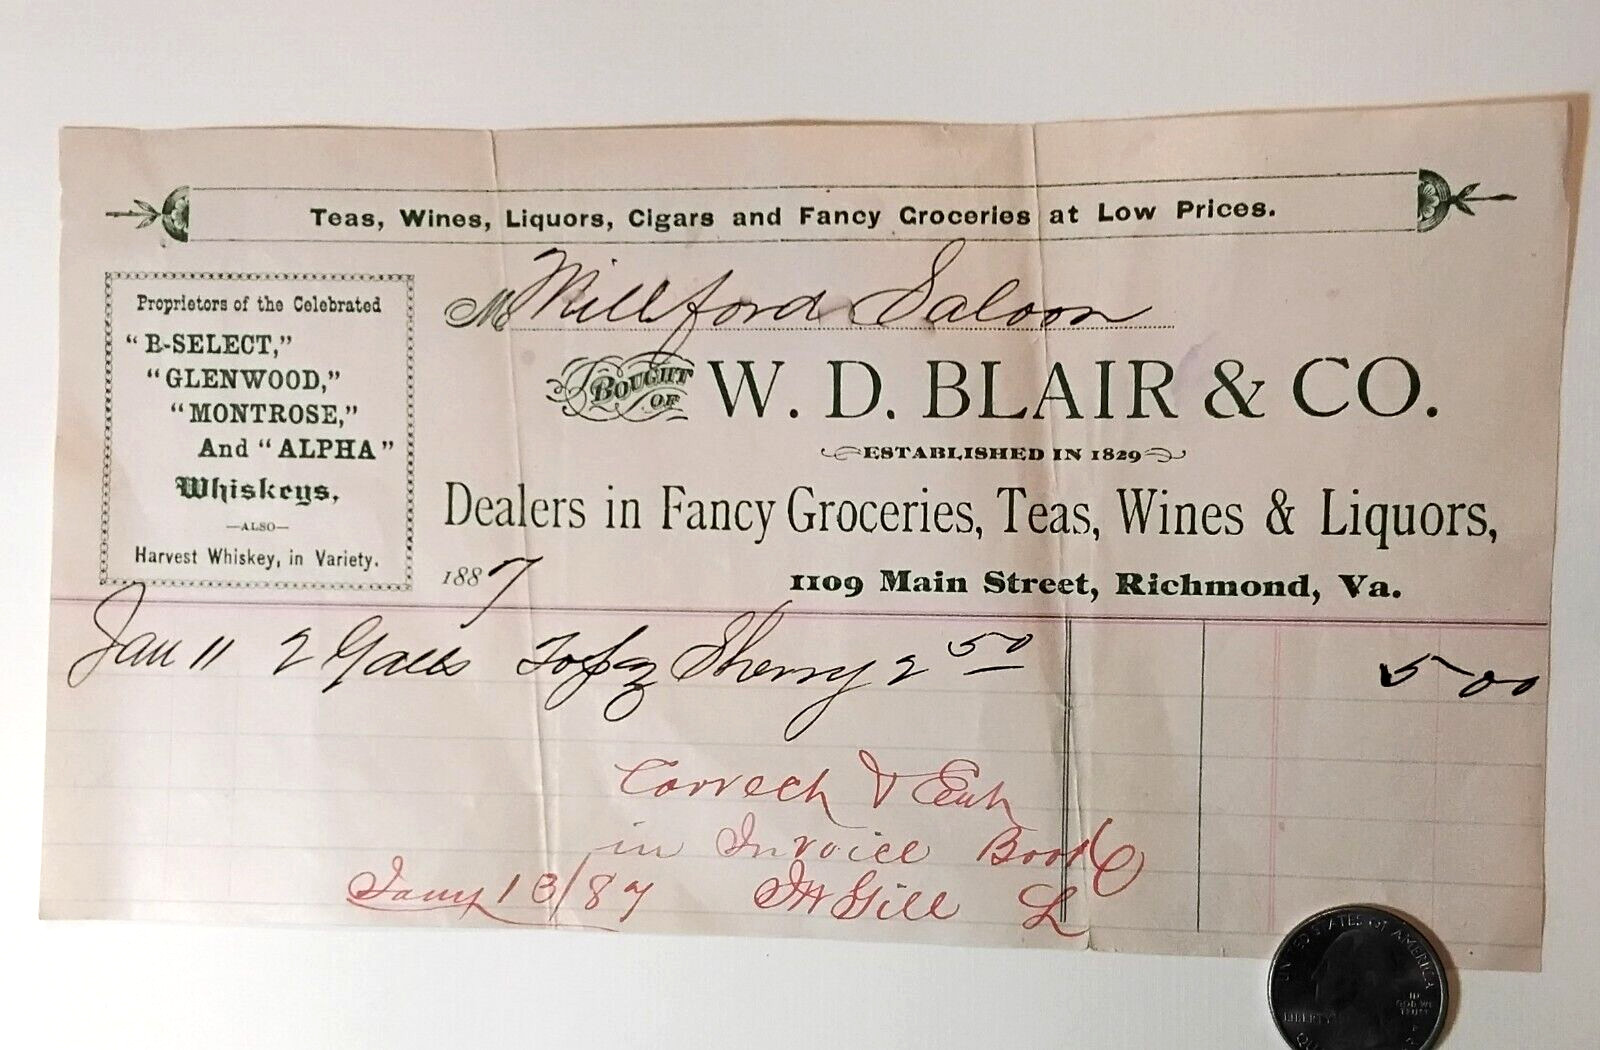 Teas, Wines, Liquors, Cigars and Fancy Groceries at Low Prices.
Proprietors of the Celebrated
"B-SELECT,"
"GLENWOOD,"
"MONTROSE,"
And "ALPHA"
Whiskeys,
—ALSO—
Harvest Whiskey, in Variety.
M Millford Saloon
BOUGHT OF W. D. BLAIR & CO.
ESTABLISHED IN 1829
Dealers in Fancy Groceries, Teas, Wines & Liquors,
1887 1109 Main Street, Richmond, Va.
Jan 11 2 Galls Sherry 2 50 5 00
Correct & Ent
in Invoice Book
Jany 13/87 Gill
UNITED STATES OF AMERICA
LIBERTY
IN
GOD WE
TRUST